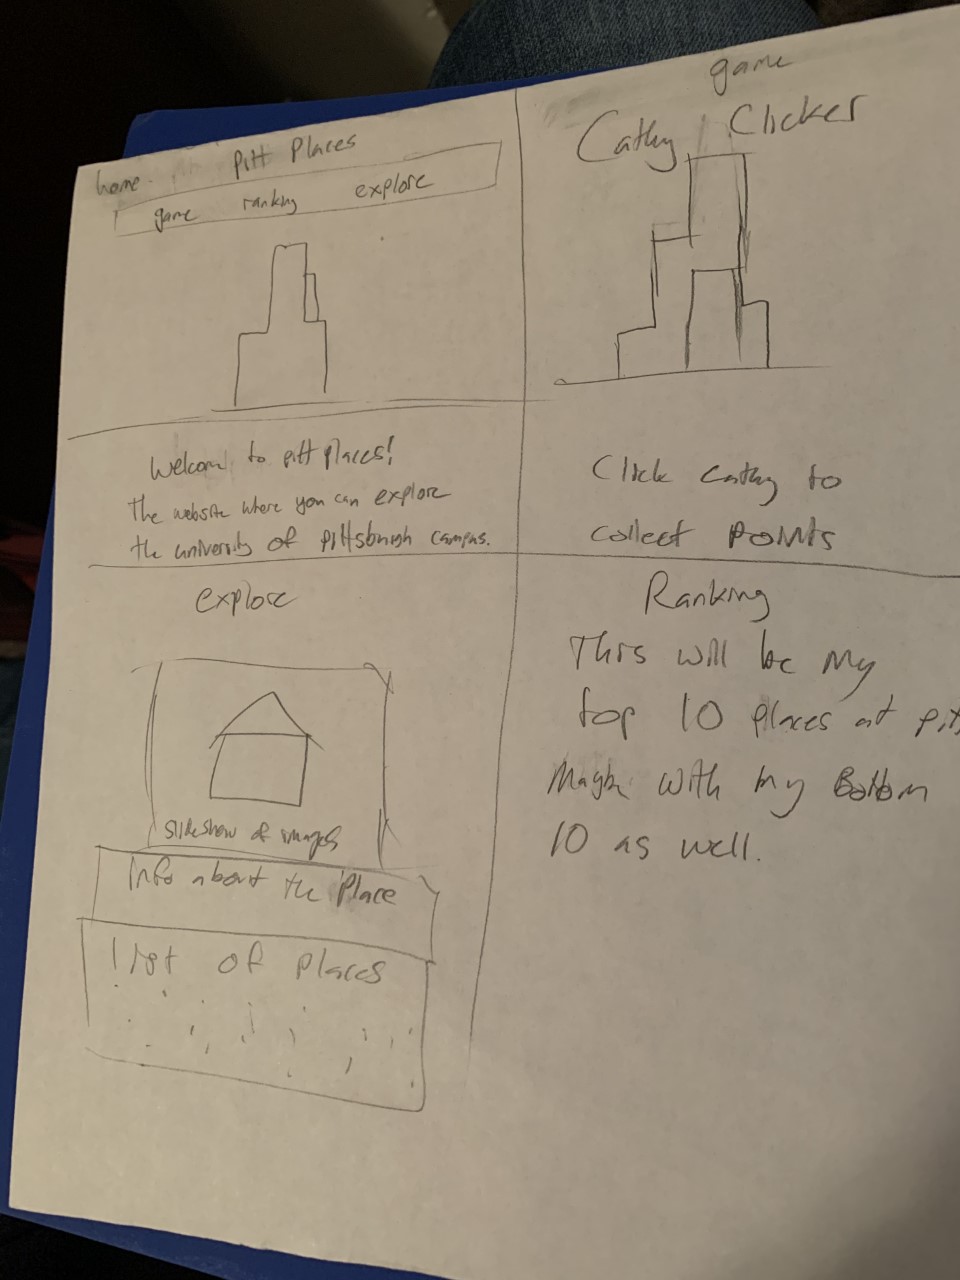 home
Pitt Places
game ranking explore
Welcom to pitt places!
the website where you can explore
the university of Pittsburgh campus.
game
Cathy Clicker
Click cathy to
collect points
explore
slideshow of images
Info about the Place
list of places
Ranking
This will be my
top 10 places at pitt
Maybe with my Bottom
10 as well.